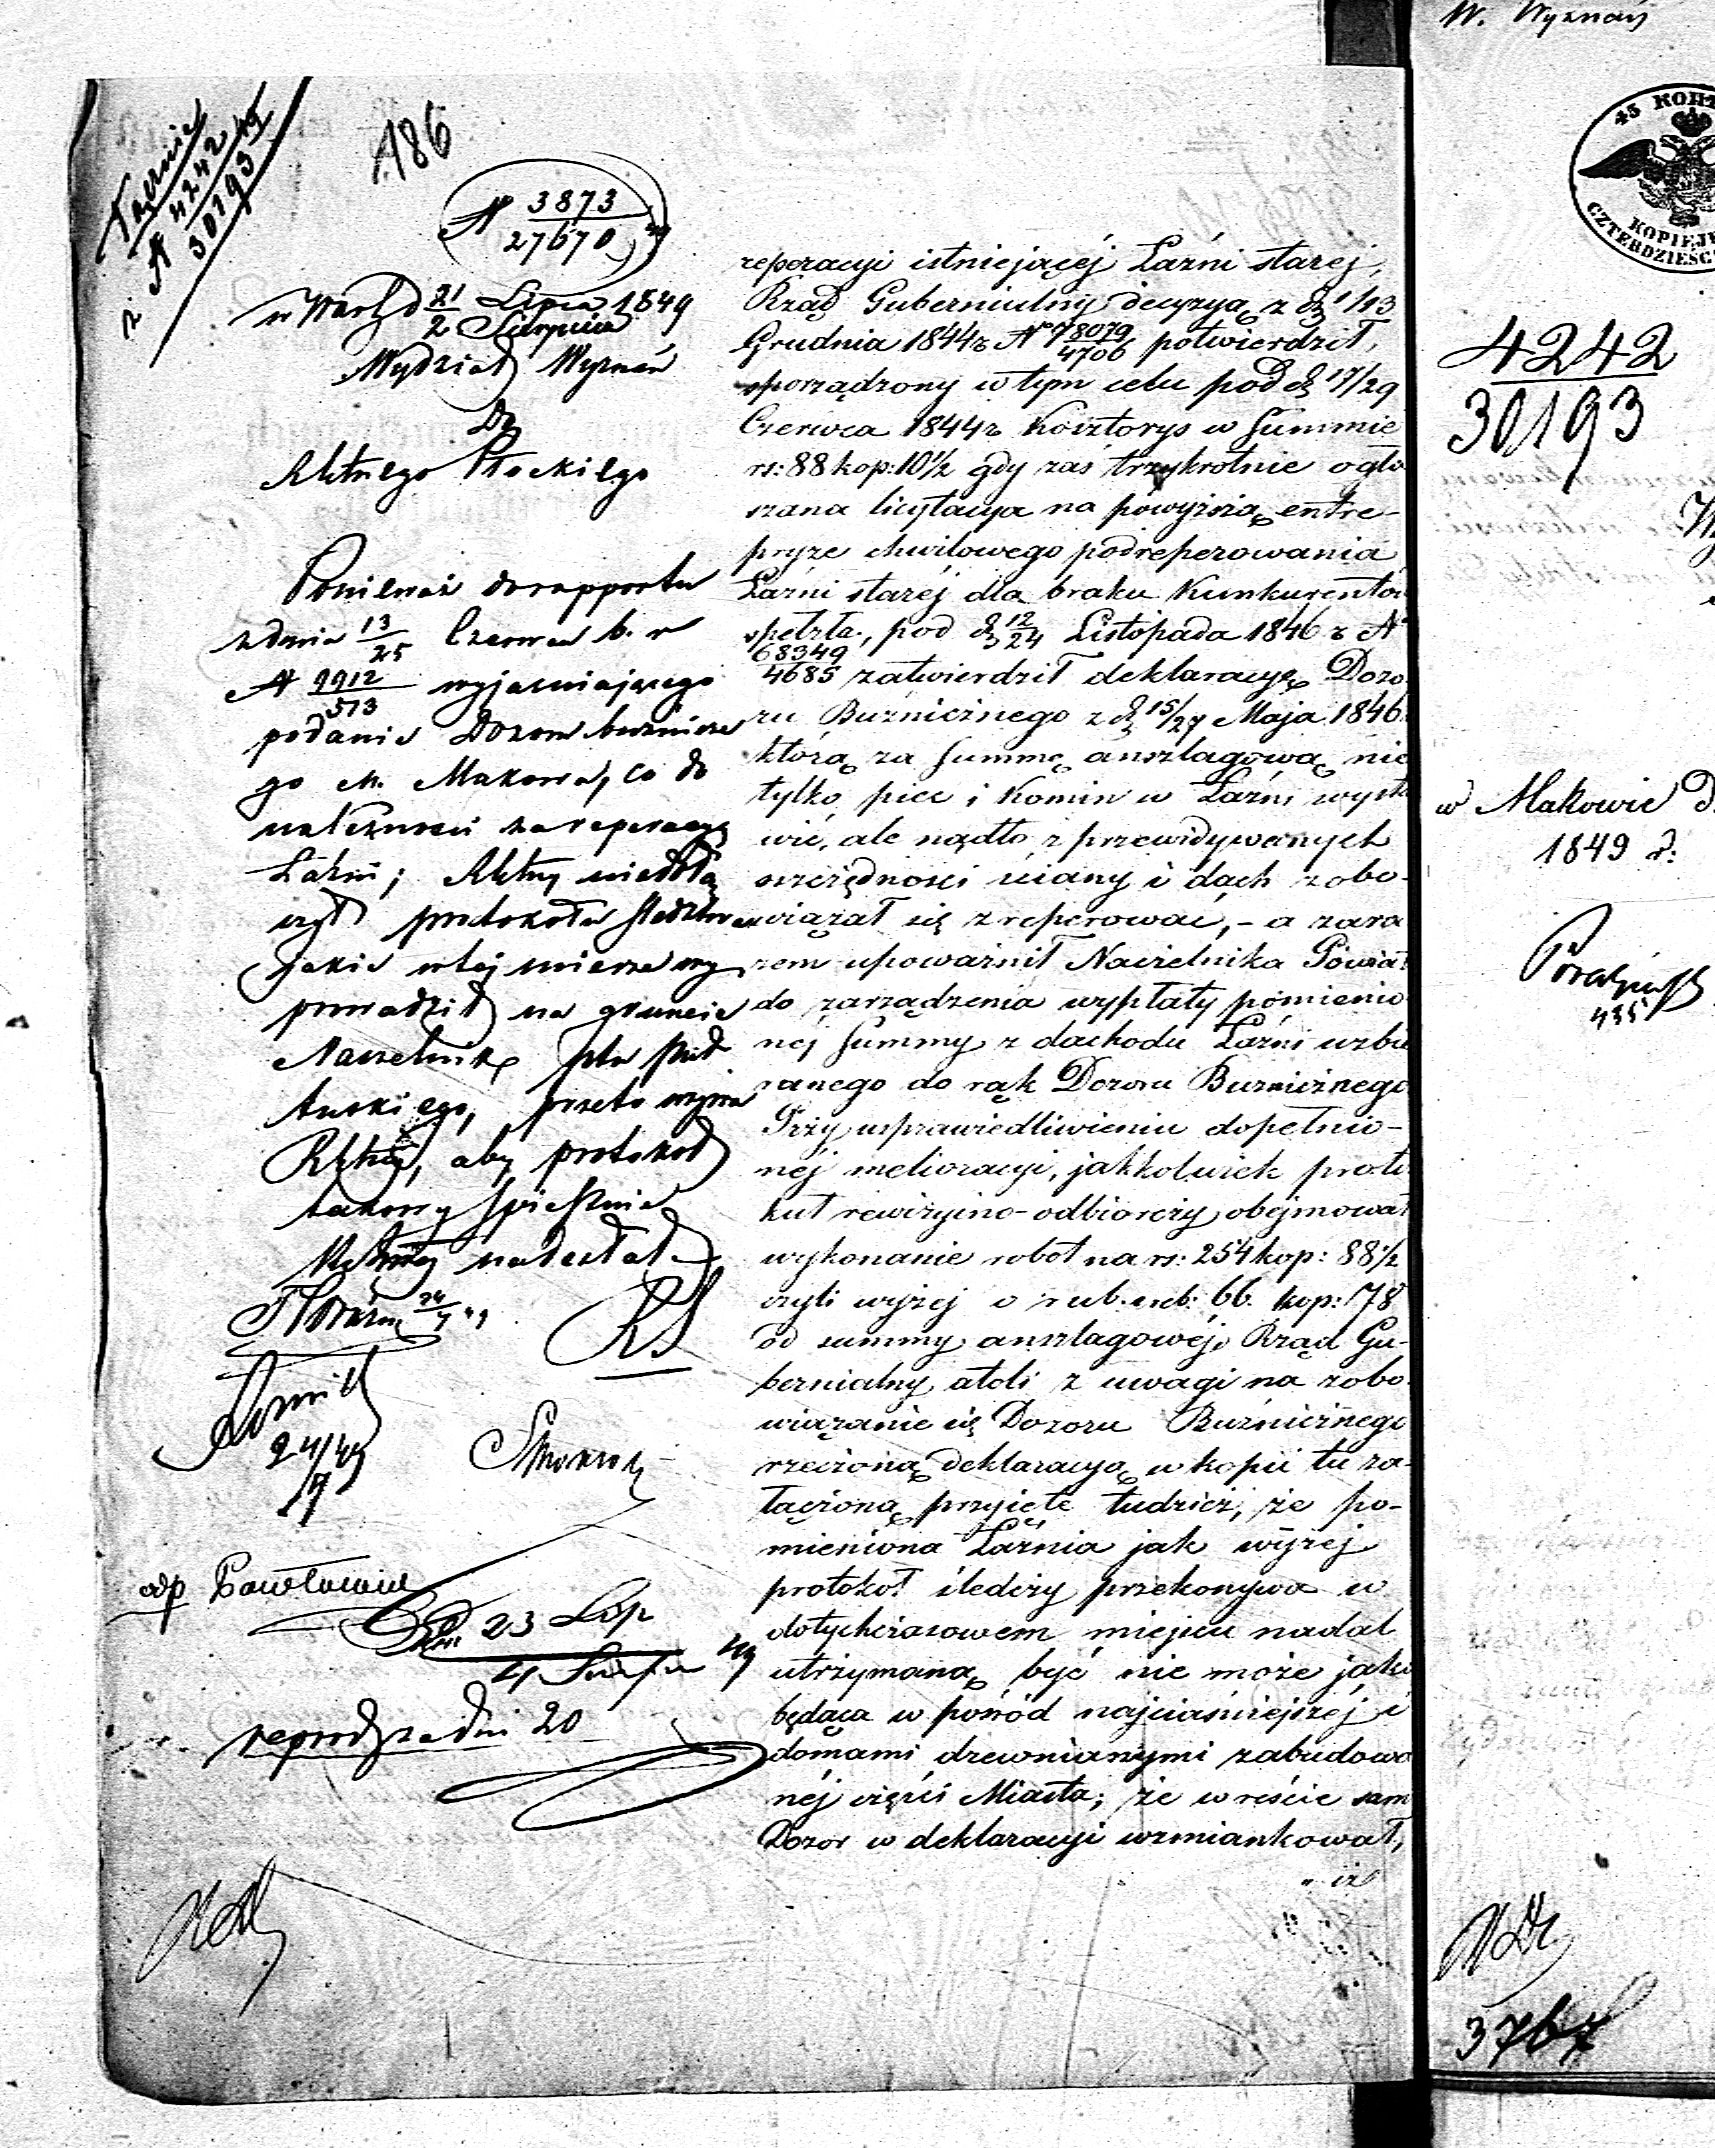 Łącznie
z N 4242/30193 49
186
N 3873/27670 49
w Warsz d 21 Lipca 1849
2 Sierpnia
Wydział Wyznań
Do
Rząd Gubernialny decyzyą z d 1/13
Płockiego
Ponieważ do rapportu
z dnia 13/25 Czerwca b. r
N 9912/573 wyjaśniającego
podanie Dozoru bużnicze
go M. Makowa, co do
należności za reperacyę
Łaźni; niedołą
czył protokołu śledczego
jakie w tej mierze wy
prowadził na gruncie
Naczelnik Ptu Puł
tuskiego, przeto wzywa
aby protokół
takowy śpiesznie
nadesłał.
24/7 49
24/7 49
exp Pawłowicz
23 Lip
4 Sierpn 49
reprod za dni 20
reperacyi istniejącéj Łaźni starej,
Rząd Gubernialny decyzyą z d 1/13
Grudnia 1844 r N 78079/4706 potwierdził,
sporządzony w tym celu pod d 17/29
Czerwca 1844 r Kosztorys w Summie
rs: 88 kop: 10½ gdy zaś trzykrotnie ogło
szana licytacya na powyższą entre-
pryzę chwilowego podreperowania
Łaźni staréj dla braku Kunkurentów
spełzła, pod d 12/24 Listopada 1846 r N
68349/4685 zatwierdził deklaracyę Dozo
ru Bużnicznego z d 15/27 Maja 1846.
którą za Summę anszlagową nie
tylko piec i Komin w Łaźni wysta
wić, ale nadto z przewidywanych
oszczędności ściany i dach zobo-
wiązał się zreperować, - a zara
zem upoważnił Naczelnika Powiat:
do zarządzenia wypłaty pomienio
nej Summy z dochodu Łaźni uzbie
ranego do rąk Dozoru Bużnicznego
Przy usprawiedliwieniu dopełnio-
néj melioracyi, jakkolwiek proto
kuł rewizyino-odbiorczy obejmował
wykonanie robot na rs: 254 kop: 88½
czyli wyżej o rub. sreb: 66. kop: 78
od summy anszlagowéj, Rząd Gu-
bernialny atoli z uwagi na zobo
wiązanie się Dozoru Bużnicznego
rzeczoną deklaracyą w kopii tu za-
łączoną przyjęte tudzież, że po-
mieniona Łaźnia jak wyżej
protokoł śledczy przekonywa w
dotychczasowem miejscu nadal
utrzymaną być nie może jako
będąca w pośród najciaśniejszéj i
domami drewnianymi zabudowa
néj części Miasta; że wreście sam
Dozor w deklaracyi wzmiankował,
"iż
W. Wyznań
45 KOП
KOPIEJE
CZTERDZIEŚC
4242
30193
w Makowie D.
1849 r:
435
3767